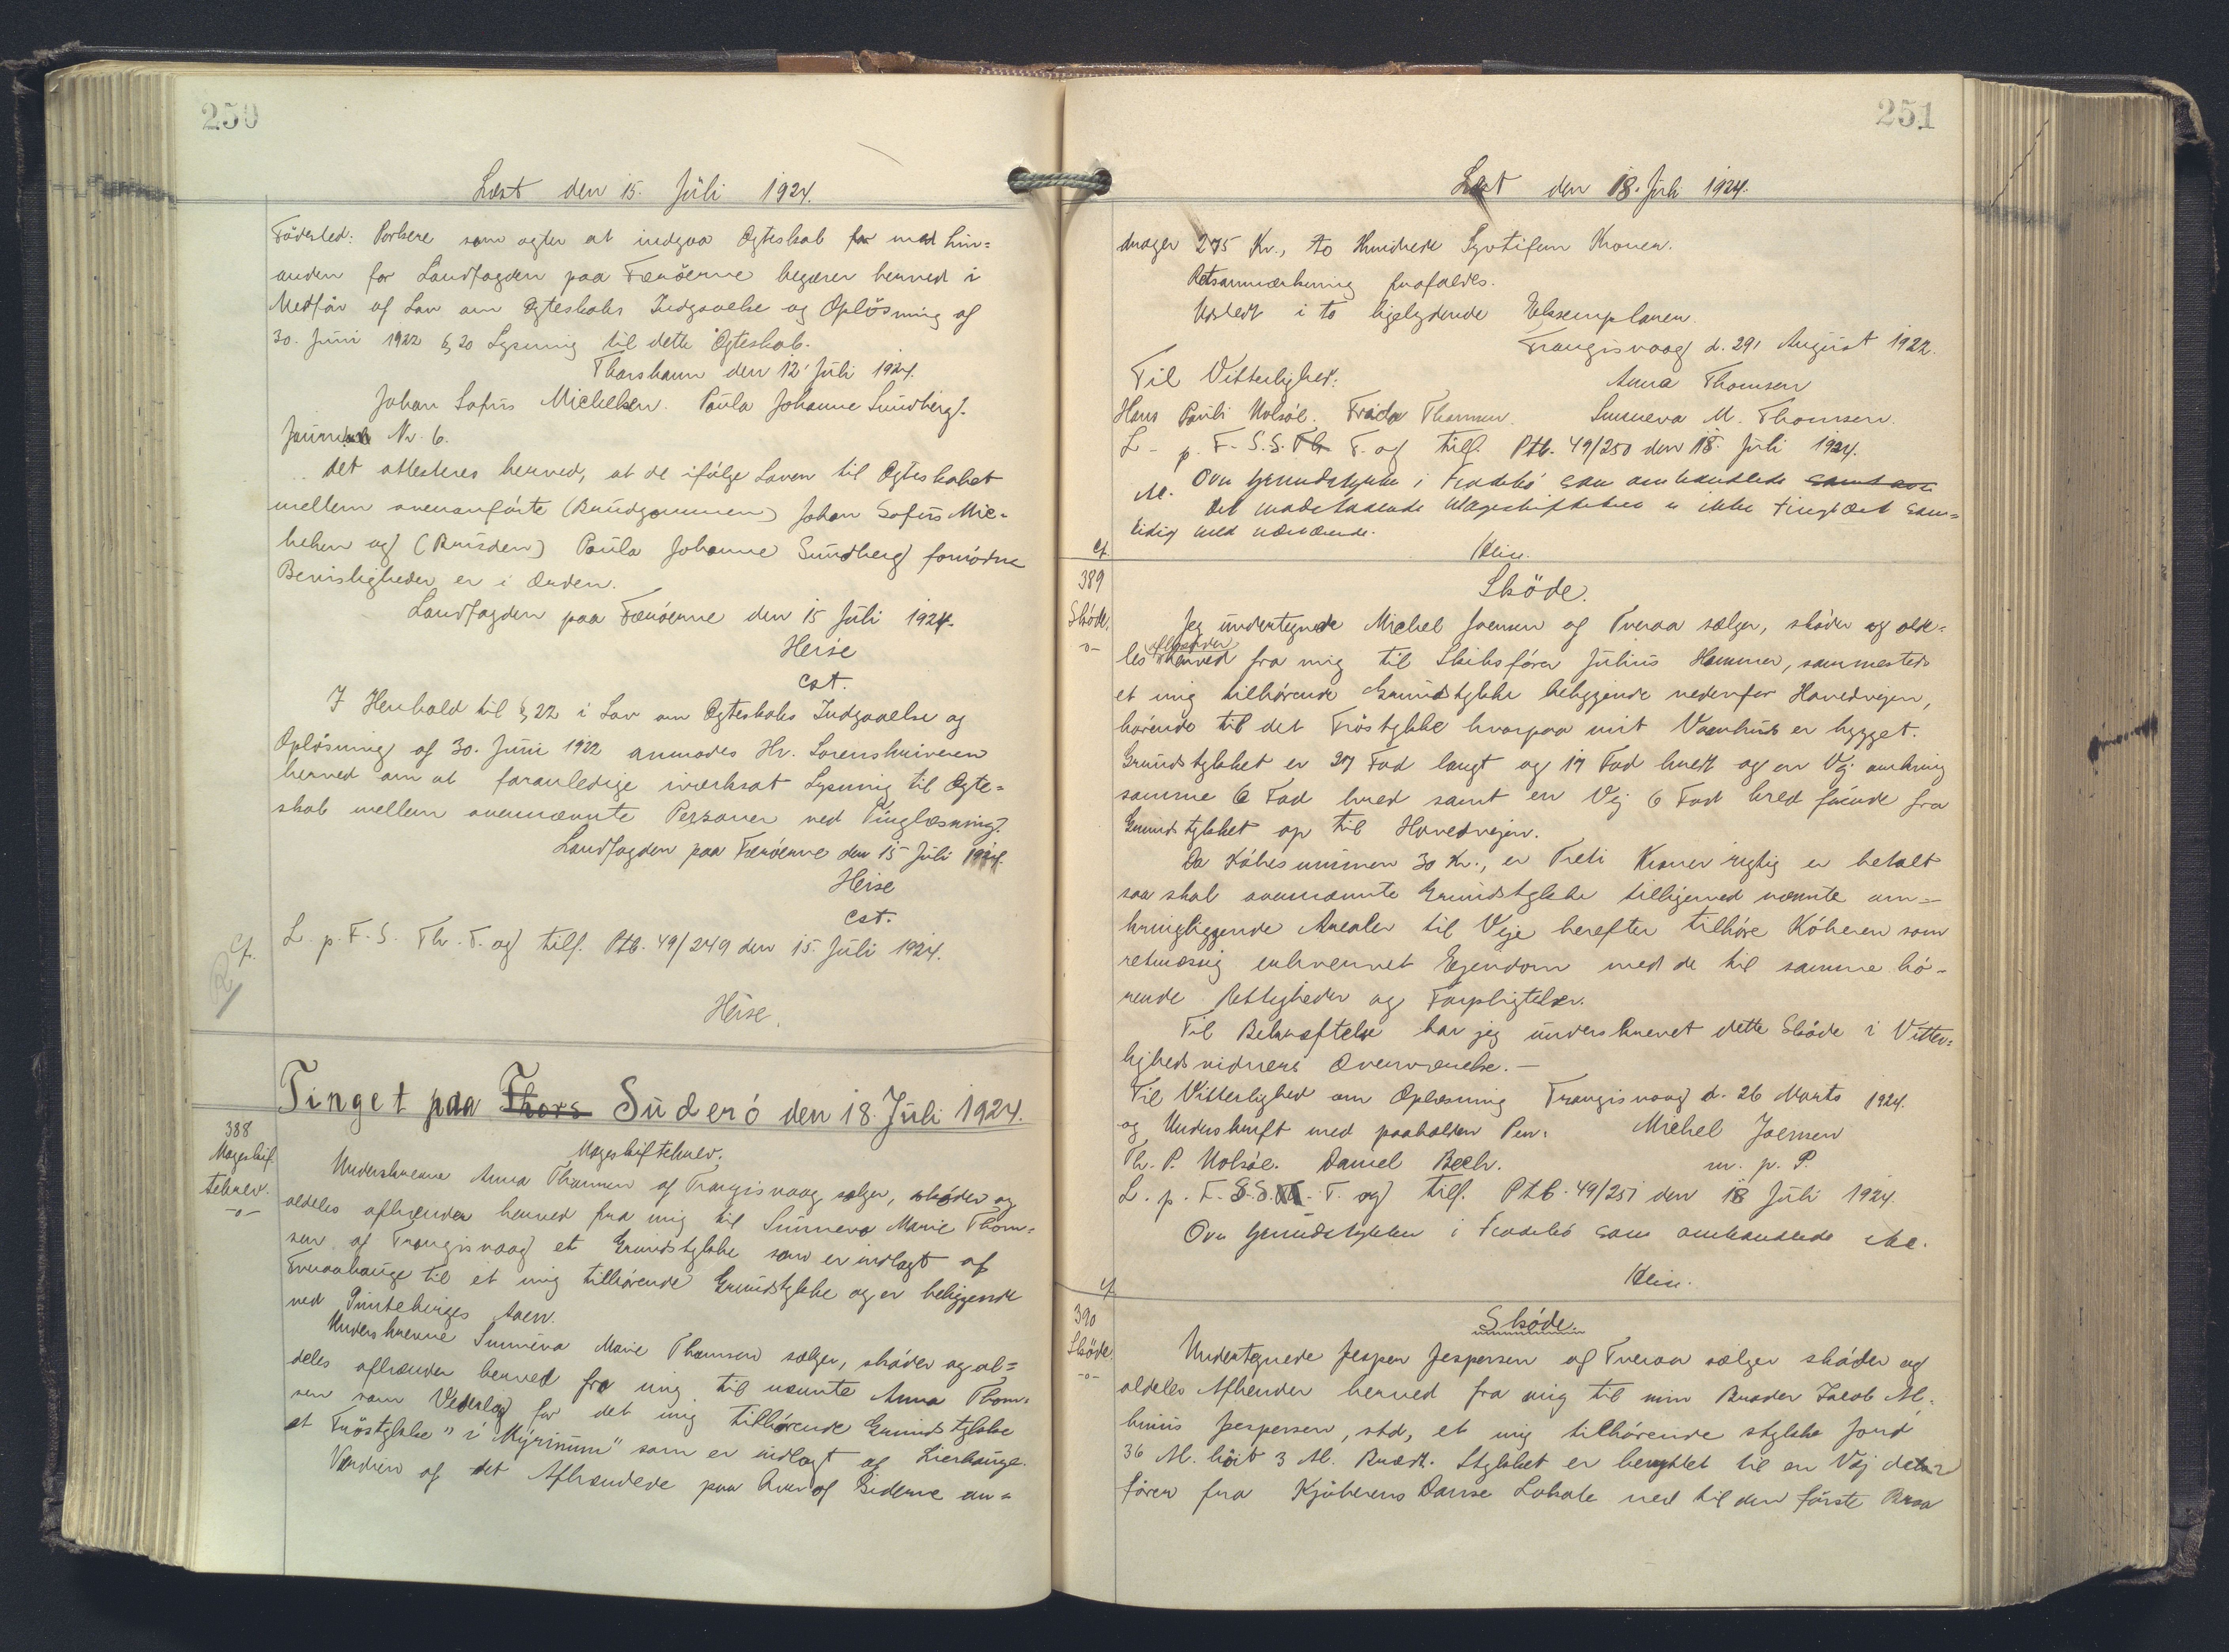 250
Læst den 15. Juli 1924.
Födested: Porkere som agter at indgaa Ægteskab for med hin=
anden for Landfogden paa Færöerne begærer herved i
Medför af Lov om Ægteskabs Indgaaelse og Oplösning af
30. Juni 1922 § 20 Lysning til dette Ægteskab.
Thorshavn den 12' Juli 1924.
Johan Sofus Michelsen. Paula Johanne Sundberg.
Journal Nr. 6.
Det attesteres herved, at de ifölge Loven til Ægteskabet
mellem ovenanförte (Brudgommen) Johan Sofus Mic=
helsen og (Bruden) Paula Johanne Sundberg fornödne
Bevisligheder er i Orden.
Landfogden paa Færöerne den 15 Juli 1924.
Heise
cst.
I Henhold til § 22 i Lov om Ægteskabs Indgaaelse og
Oplösning af 30. Juni 1922 anmodes Hr. Sorenskriveren
herved om at foranledige iværksat Lysning til Ægte=
skab mellem ovennævnte Personer ved Tinglæsning.
Landfogden paa Færöerne den 15 Juli 1924.
Heise
cst.
Cf. L. p. F. S. Th. T. og tilf. Ptb. 49/249 den 15. Juli 1924.
R
Heise.
Tinget paa Thors Suderó den 18. Juli 1924.
388
Mageskif
tebrev.
-o-
Mageskiftebrev.
Underskrevne Anna Thomsen af Trangisvaag sælger, skøder og
aldeles afhænder herved fra mig til Sunneva Marie Thom=
sen af Trangisvaag et Grundstykke som er indlagt af
Tveraahauge til et mig tilhörende Grundstykke og er beliggende
ved Aaen.
Underskrevne Sunneva Marie Thomsen sælger, skóder og al=
deles afhænder herved fra mig til nævnte Anna Thom=
sen som Vederlag for det mig tilhörende Grundstykke
et Tröstykke "i Mýrinum" som er indlagt af Lierhauge.
Værdien af det Afhændede paa hver af Siderne an=
251
Læst den 18. Juli 1924.
drager 275 Kr., to Hundrede Syvtifem Kroner.
Retsanmærkning frafaldes.
Udstedt i to ligelydende Eksemplarer.
Trangisvaag d. 29' August 1922.
Til Vitterlighed:
Anna Thomsen
Hans Pauli Holsöe. Frida Thomsen. Sunneva M. Thomsen.
L. p. F. S. S. Th T. og tilf. Ptb. 49/250 den 18. Juli 1924.
Ae. Over Grundstykke i Frodebó som omhandlede samt
Det modstaaende Mageskiftebrev er ikke tinglæst sam=
tidig med nærværende.
Cf.
Heise.
389
Sköde.
-o-
Sköde.
Jeg undertegnede Michel Joensen af Tveraa sælger, skóder og alde=
les afhænder herved fra mig til Skibsfórer Julius Hammer, sammesteds
et mig tilhórende Grundstykke beliggende nedenfor Hovedvejen,
hórende til det Tróstykke hvorpaa mit Vaanhus er bygget.
Grundstykket er 27 Fod langt og 17 Fod bredt og en Vej omkring
samme 6 Fod bred samt en Vej 6 Fod bred fórende fra
Grundstykket op til Hovedvejen.
Da Kóbesummen 30 Kr., er Treti Kroner rigtig er betalt
saa skal ovennævnte Grundstykke tilligemed nævnte om=
kringliggende Arealer til Veje herefter tilhóre Kóberen som
retmæssig erhvervet Ejendom med de til samme hö=
rende Rettigheder og Forpligtelser.
Til Bekræftelse har jeg underskrevet dette Skóde i Vitter=
lighedsvidners Overværelse.—
Til Vitterlighed om Oplæsning Trangisvaag d. 26 Marts 1924.
og Underskrift med paaholden Pen: Michel Joensen
Th. P. Holsöe. Daniel Bech. m. p. P.
L. p. F. S. S. T. og tilf. Ptb. 49/251 den 18 Juli 1924.
Over Grundstykket i Frodebó som omhandlede Ae.
Heise.
Cf.
390
Sköde.
-o-
Skóde.
Undertegnede Jesper Jespersen af Tveraa sælger skóder og
aldeles Afhænder herved fra mig til min Broder Jacob Al=
binus Jespersen, std, et mig tilhórende stykke Jord
36 Al. höit 3 Al. Bredt. Stykket er benyttet til en Vej der
förer fra Kjöberens Danse Lokale ned til den förste Braa